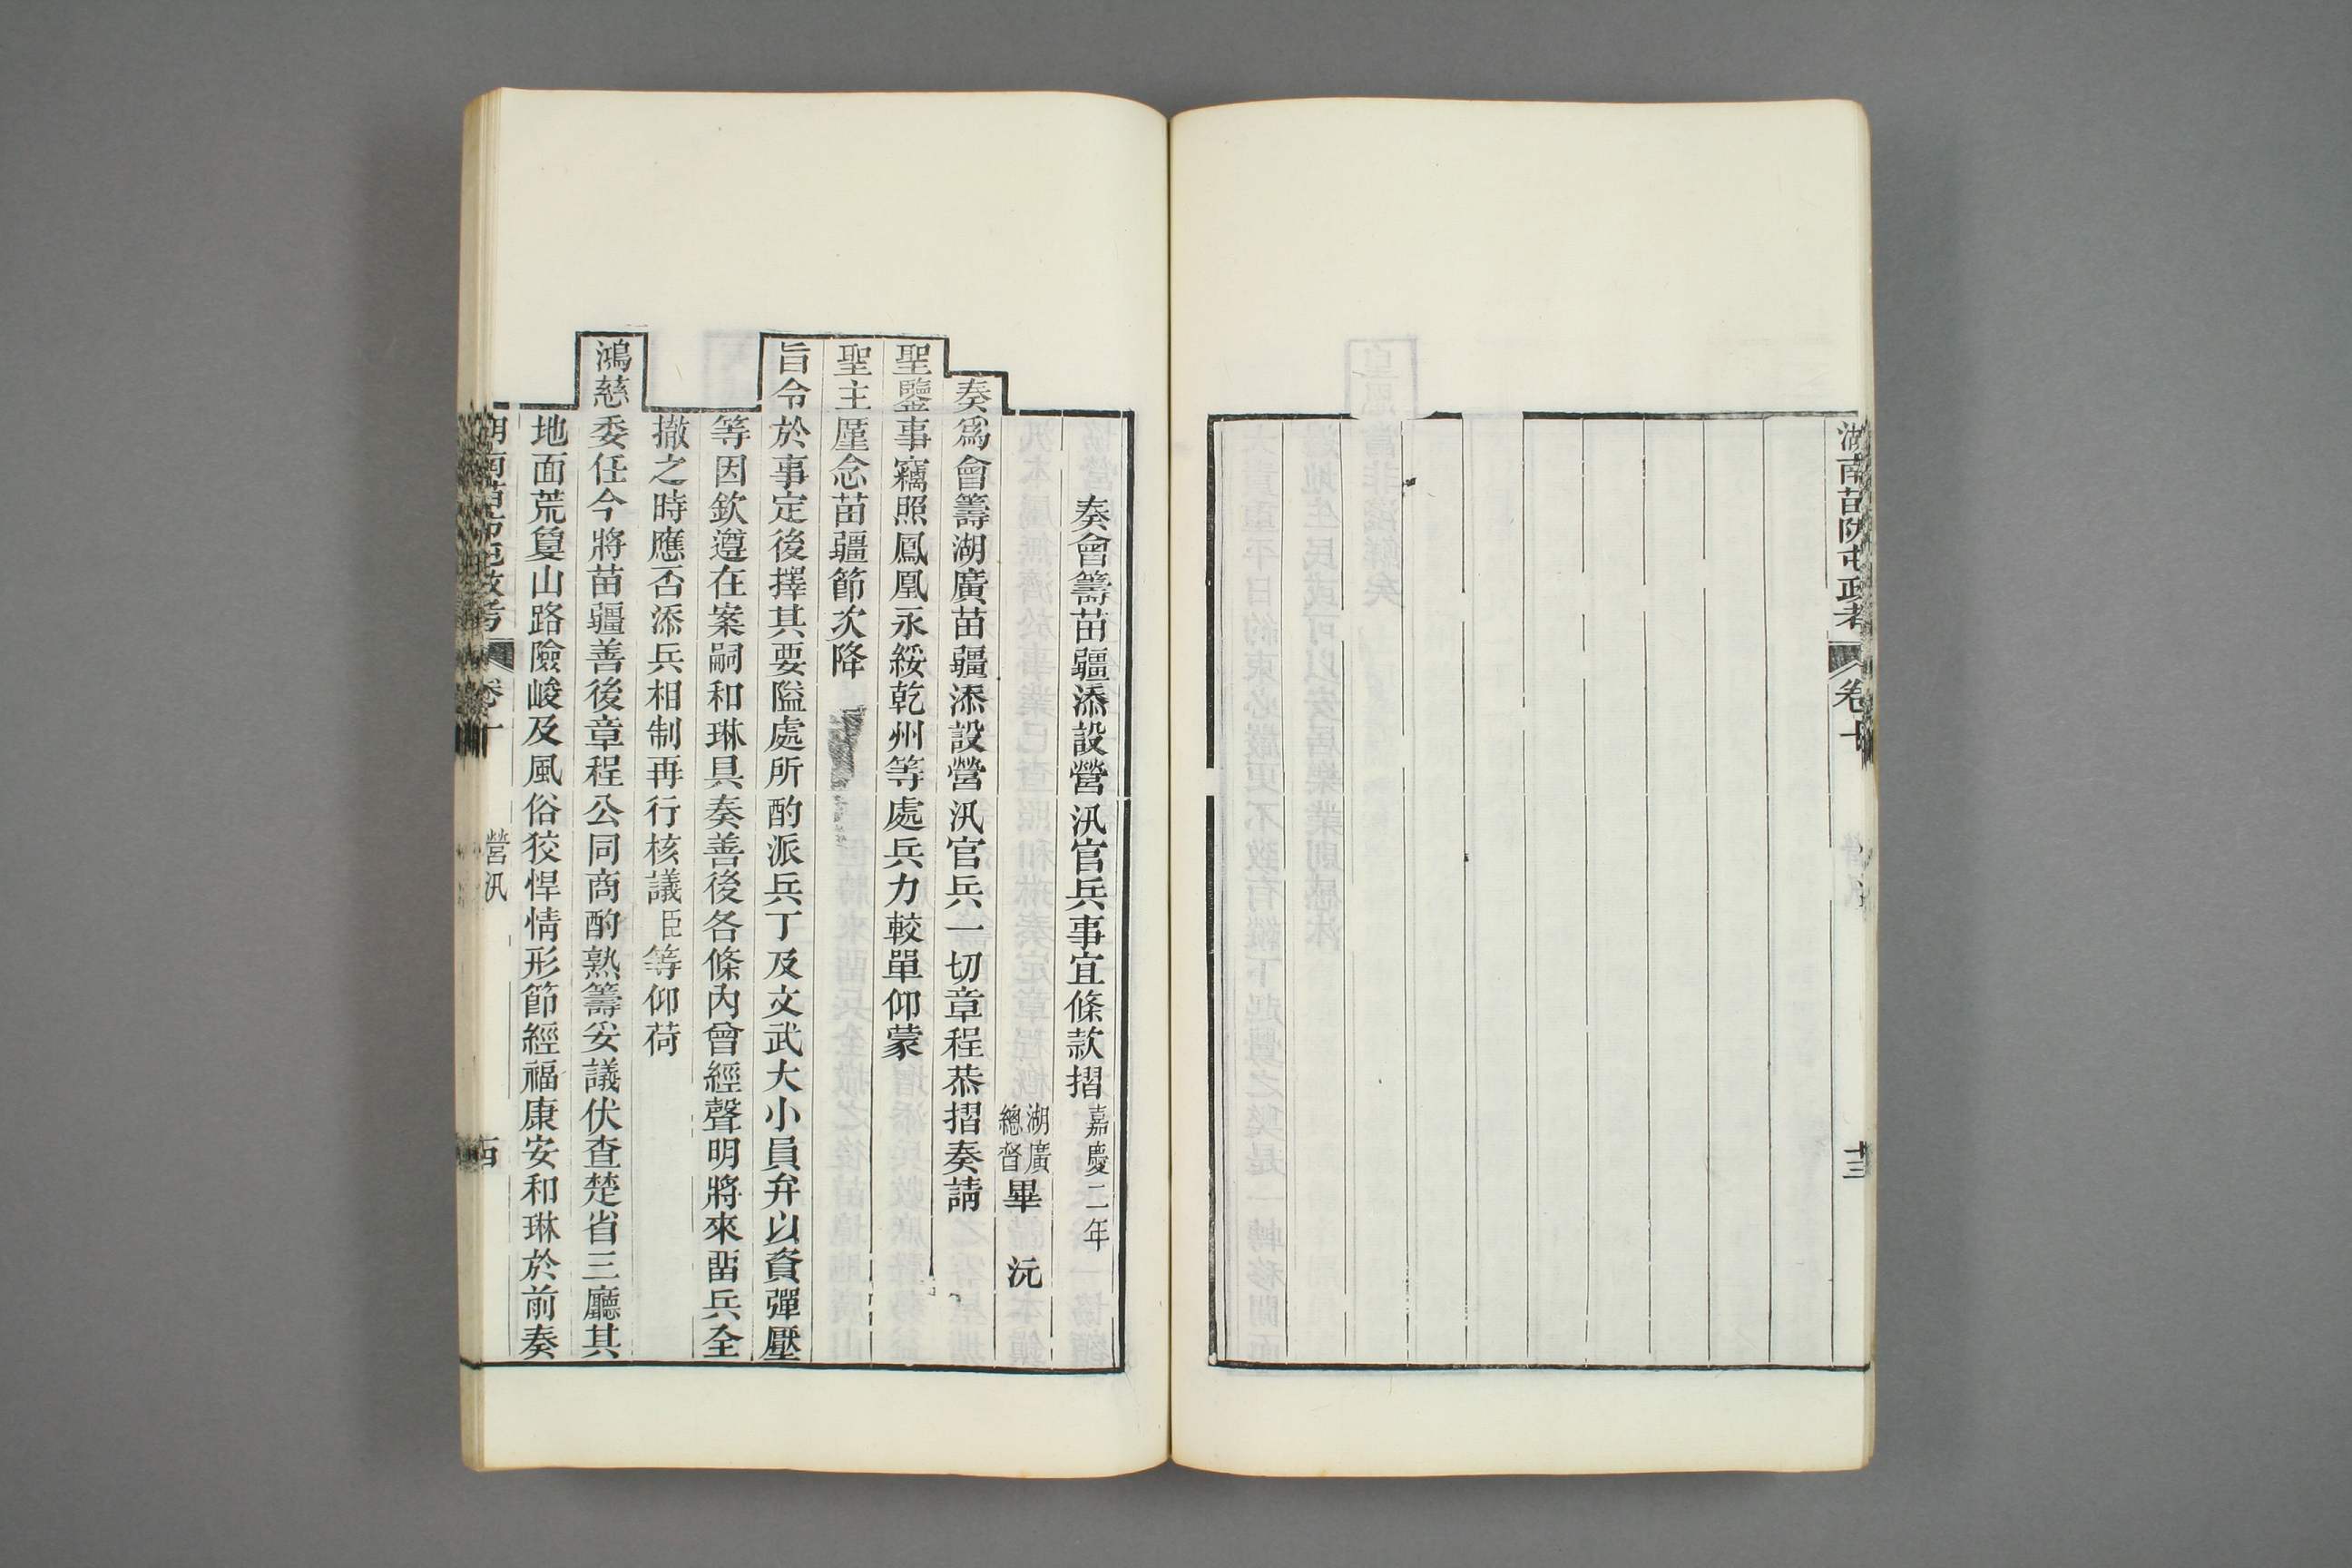 湖南苗防屯政考
卷十
十三
奏會籌苗疆添設營汛官兵事宜條款摺 嘉慶二年
湖廣總督畢 沅
奏爲會籌湖廣苗疆添設營汛官兵一切章程恭摺奏請
聖鑒事竊照鳳凰永綏乾州等處兵力較單仰蒙
聖主厪念苗疆節次降
旨令於事定後擇其要隘處所酌派兵丁及文武大小員弁以資彈壓
等因欽遵在案嗣和琳具奏善後各條內曾經聲明將來畱兵全
撤之時應否添兵相制再行核議臣等仰荷
鴻慈委任今將苗疆善後章程公同商酌熟籌妥議伏查楚省三廳其
地面荒敻山路險峻及風俗狡悍情形節經福康安和琳於前奏
湖南苗防屯政考
營汛